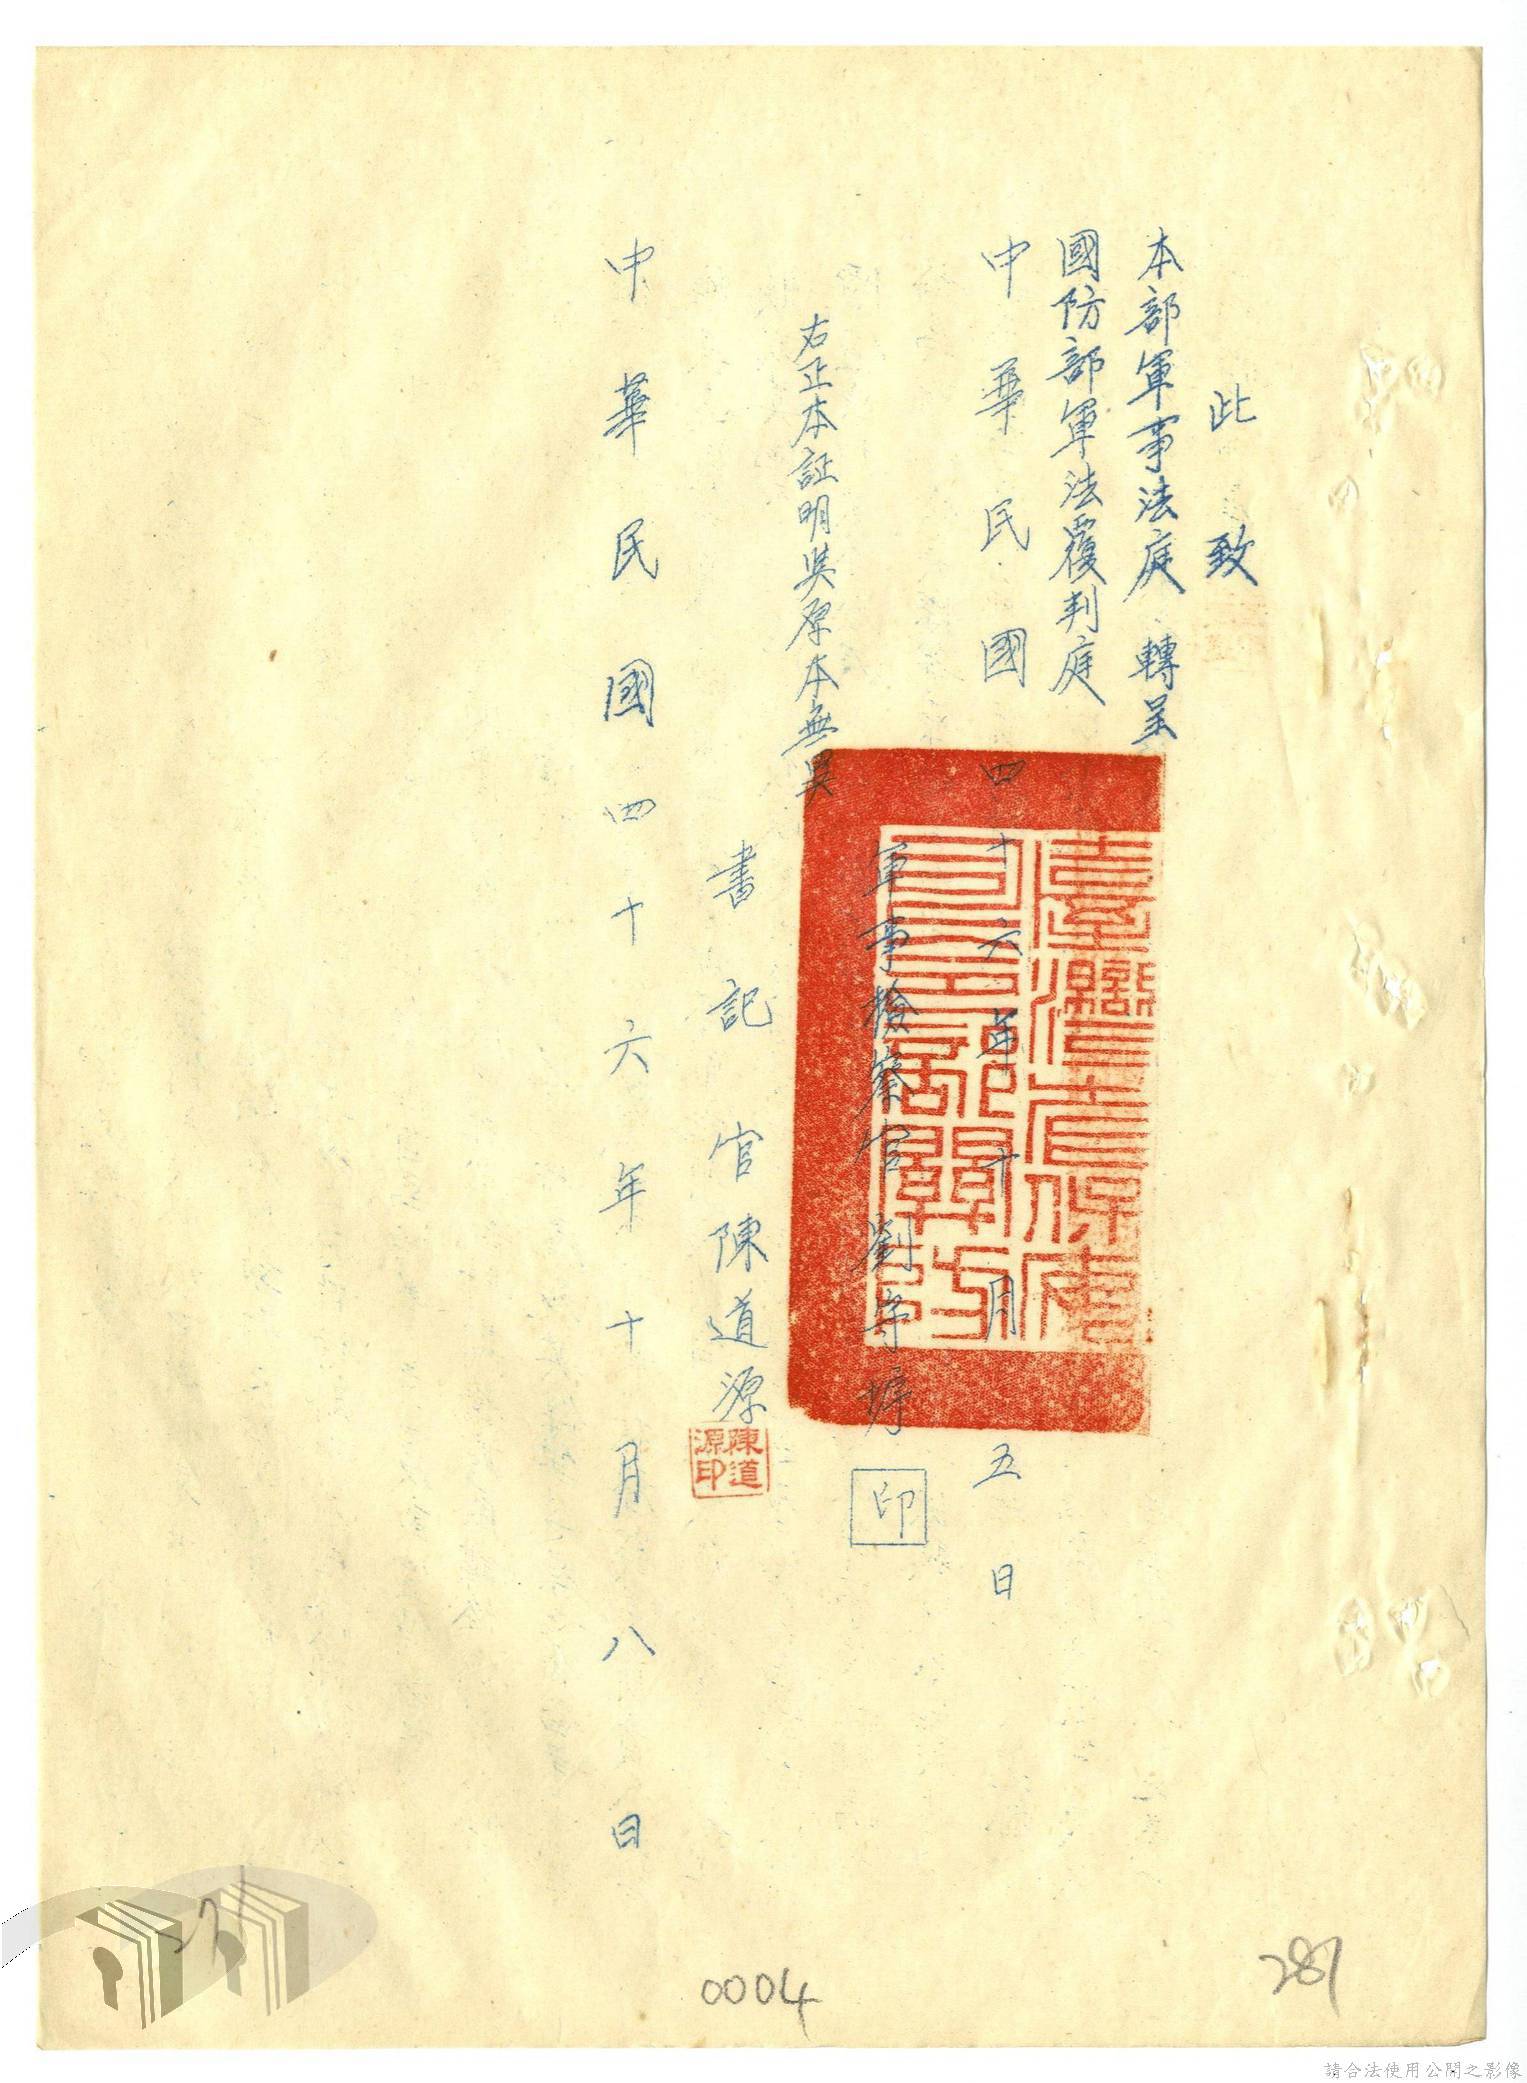 此致
本部軍事法庭 轉呈
國防部軍法覆判庭
中華民國四十六年十月五日
軍事檢察官劉
印
右正本証明與原本無異
書記官陳道源
陳道源印
中華民國四十六年十月八日
0004
281
請合法使用公開之影像